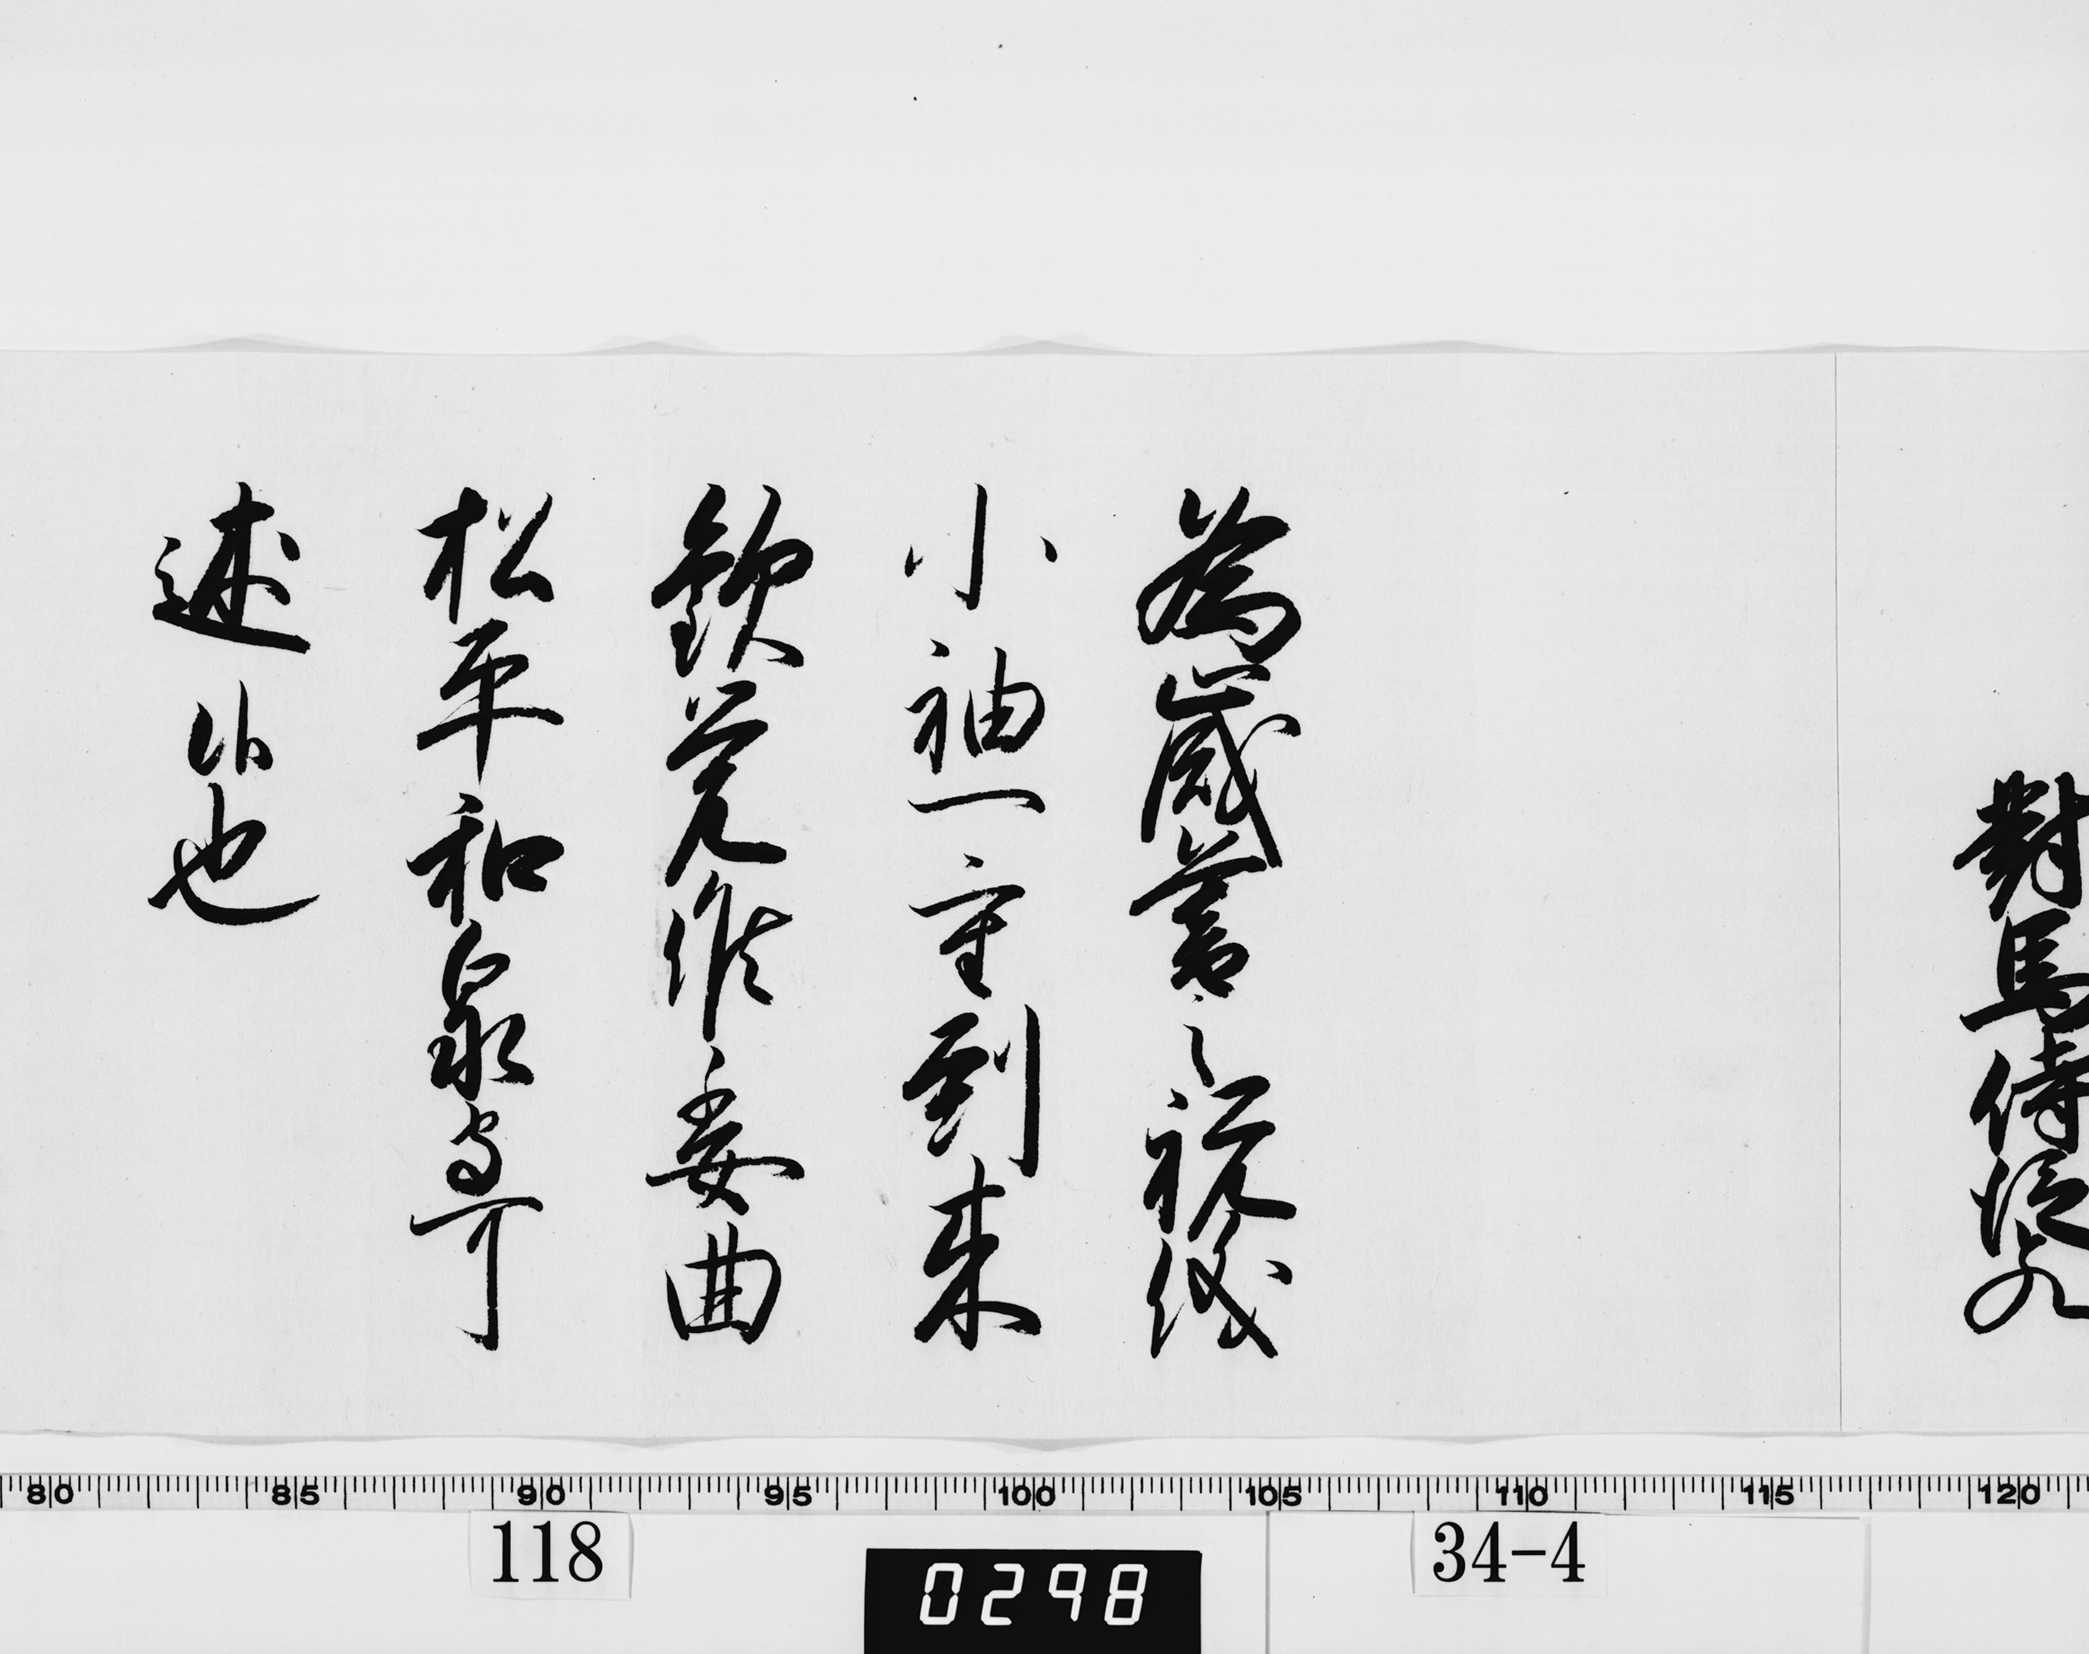 對馬侍從殿
為歳暮之祝儀
小袖一重到来
歓覚候委曲
松平和泉守可
述候也
80 85 90 95 100 105 110 115 120
118
0298
34-4